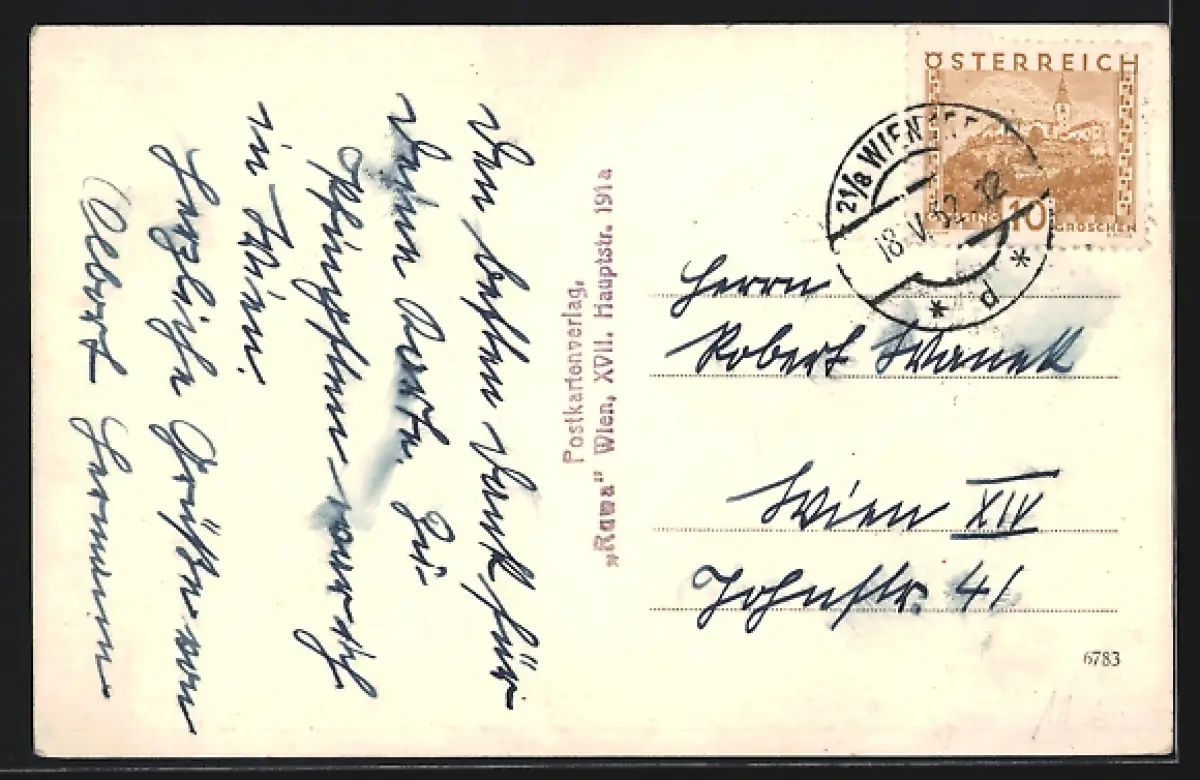 Den besten Dank für
Deine Karte. Zu
Pfingsten war ich
in Wien.
Herzliche Grüße von
Albert Hermann
Postkartenverlag,
„Rawa" Wien, XVII. Hauptstr. 191a
ÖSTERREICH
GÜSSING 10 GROSCHEN
21/8 WIEN
18.V.32 12
* d *
Herrn
Robert Wanek
Wien XIV
Johnstr. 41
6783